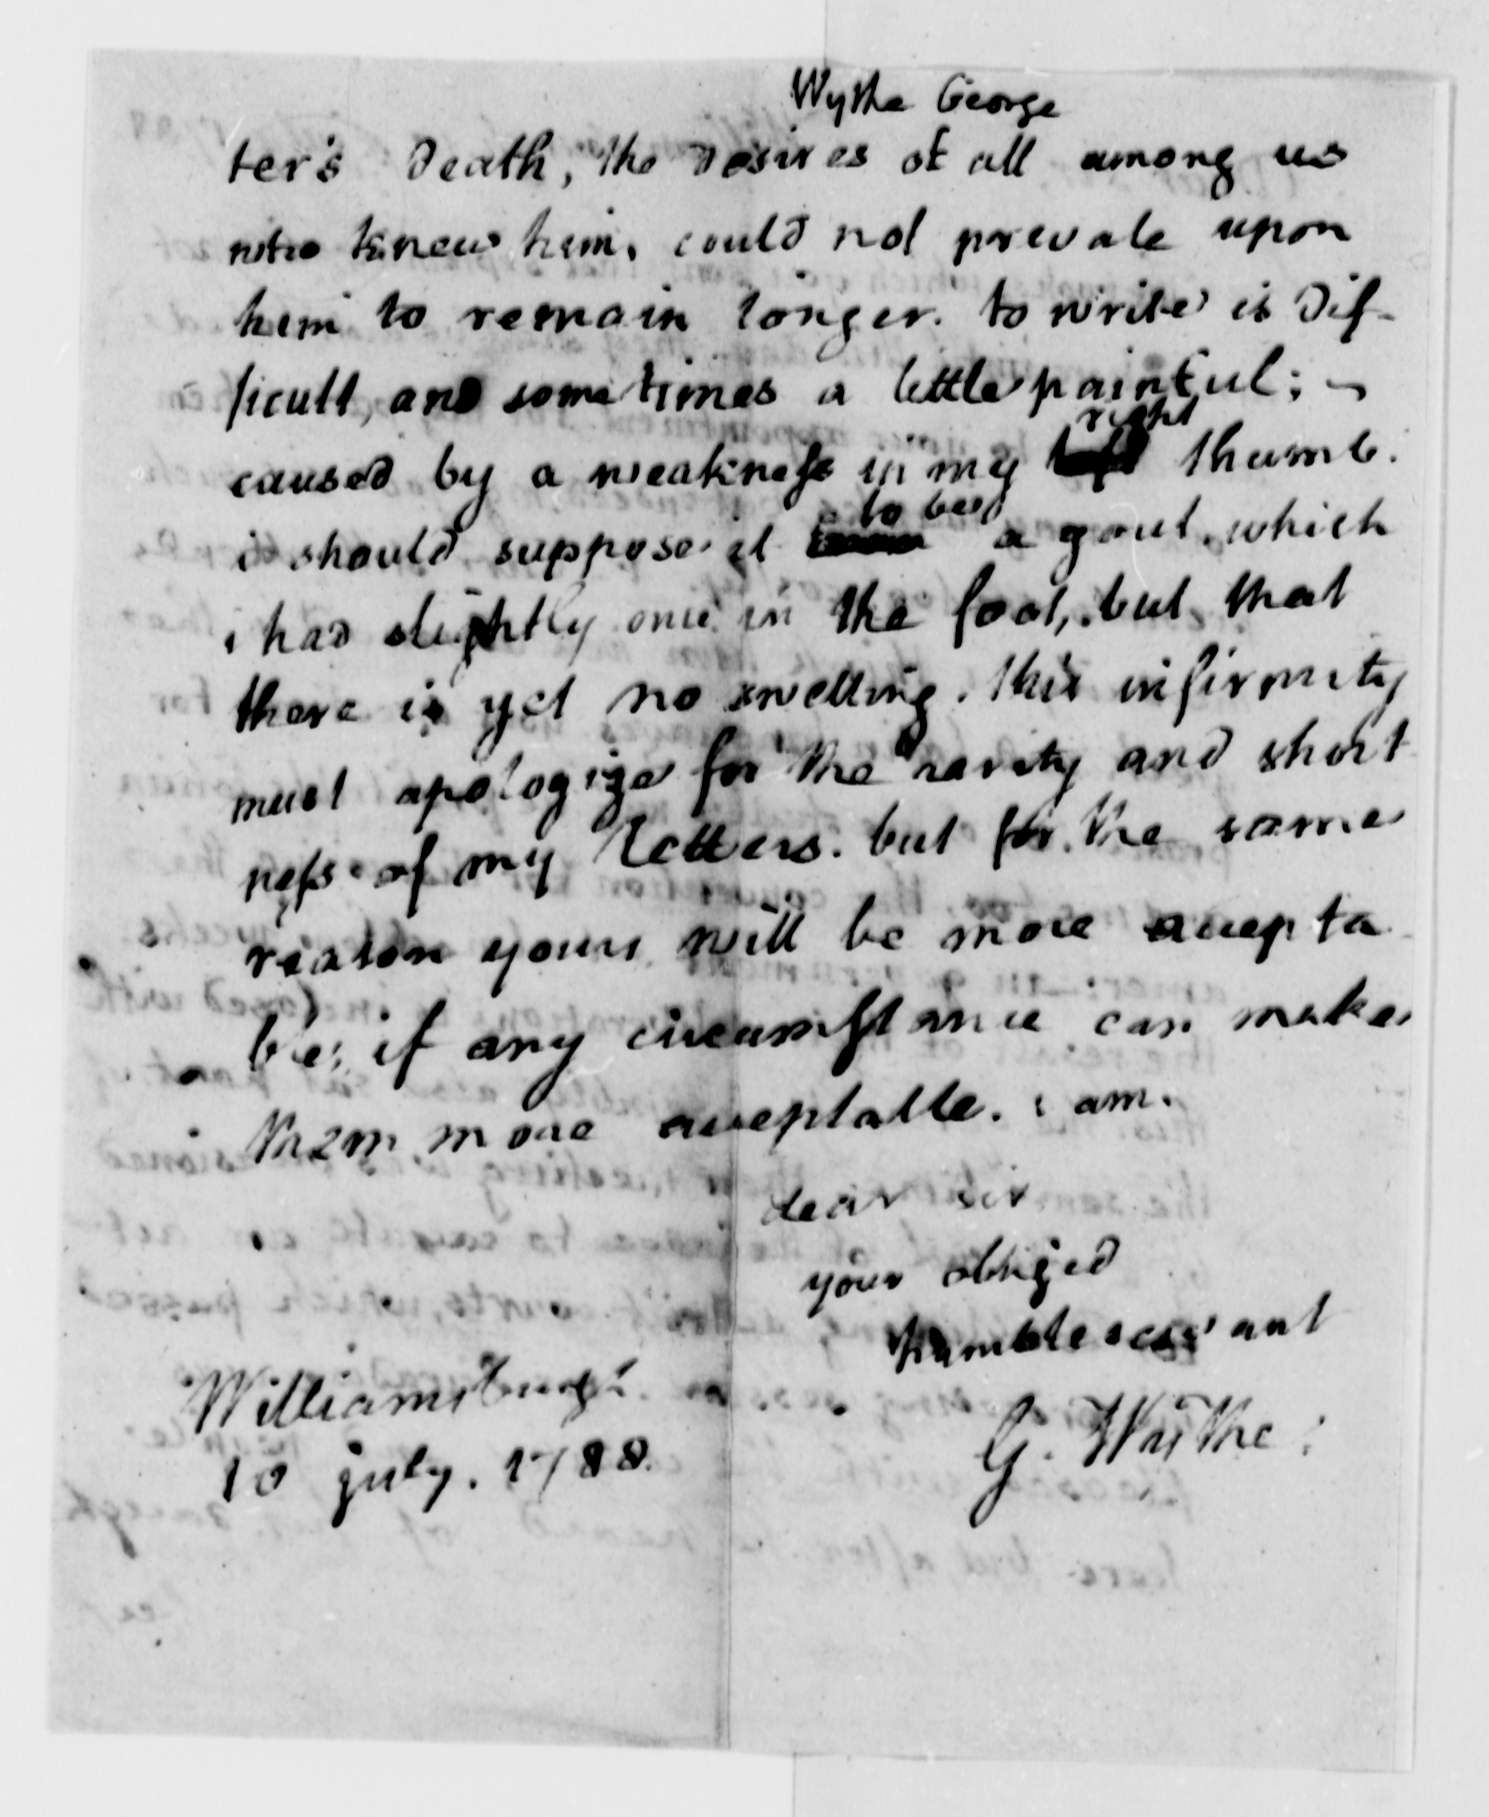 Wythe George
ter's death, the desires of all among us
who knew him, could not prevale upon
him to remain longer. to write is dif-
ficult, and sometimes a little painful;
caused by a weakness in my right thumb.
i should suppose it to be a gout, which
i had slightly once in the foot, but that
there is yet no swelling. this infirmity
must apologize for the rarity and short
ness of my letters. but for the same
reason yours will be more accepta
ble; if any circumstance can make
them more acceptable. i am.
dear sir
your obliged
humble servant
G. Wythe.
Williamsburgh
10 july. 1788.